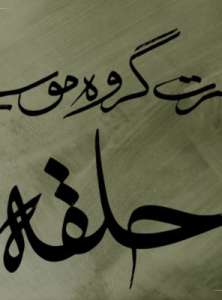 رت گروه موس
حلقه